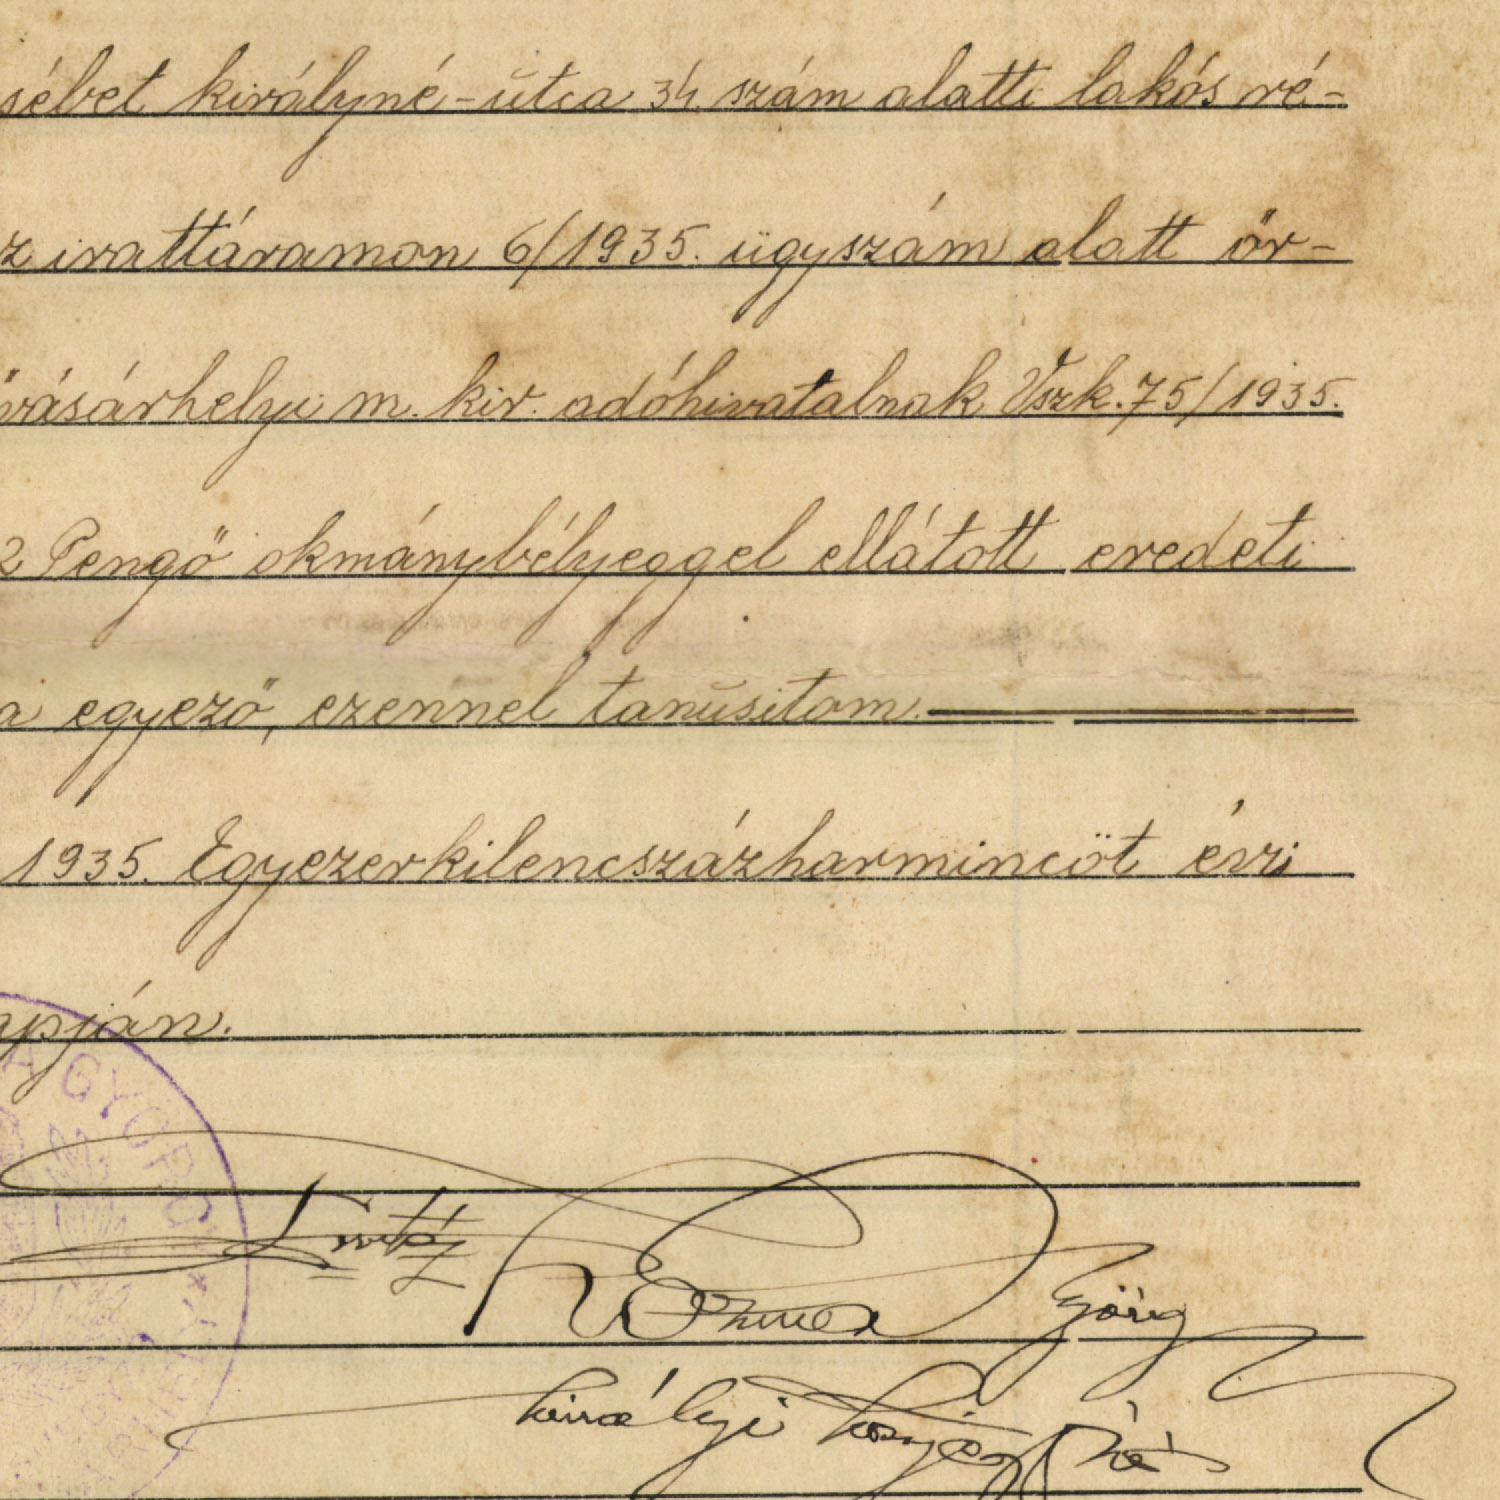 sébet királyné-útca 34 szám alatti lakós ré-
z irattáramon 6/1935. ügyszám alatt őr-
vásárhelyi m. kir. adóhivatalnak Vszk. 75/1935.
2 Pengő okmánybélyeggel ellátott eredeti
a egyező, ezennel tanúsitom.
1935. Egyezerkilencszázharmincöt évi
apján.
A GYÖRGY
királyi közjegyző